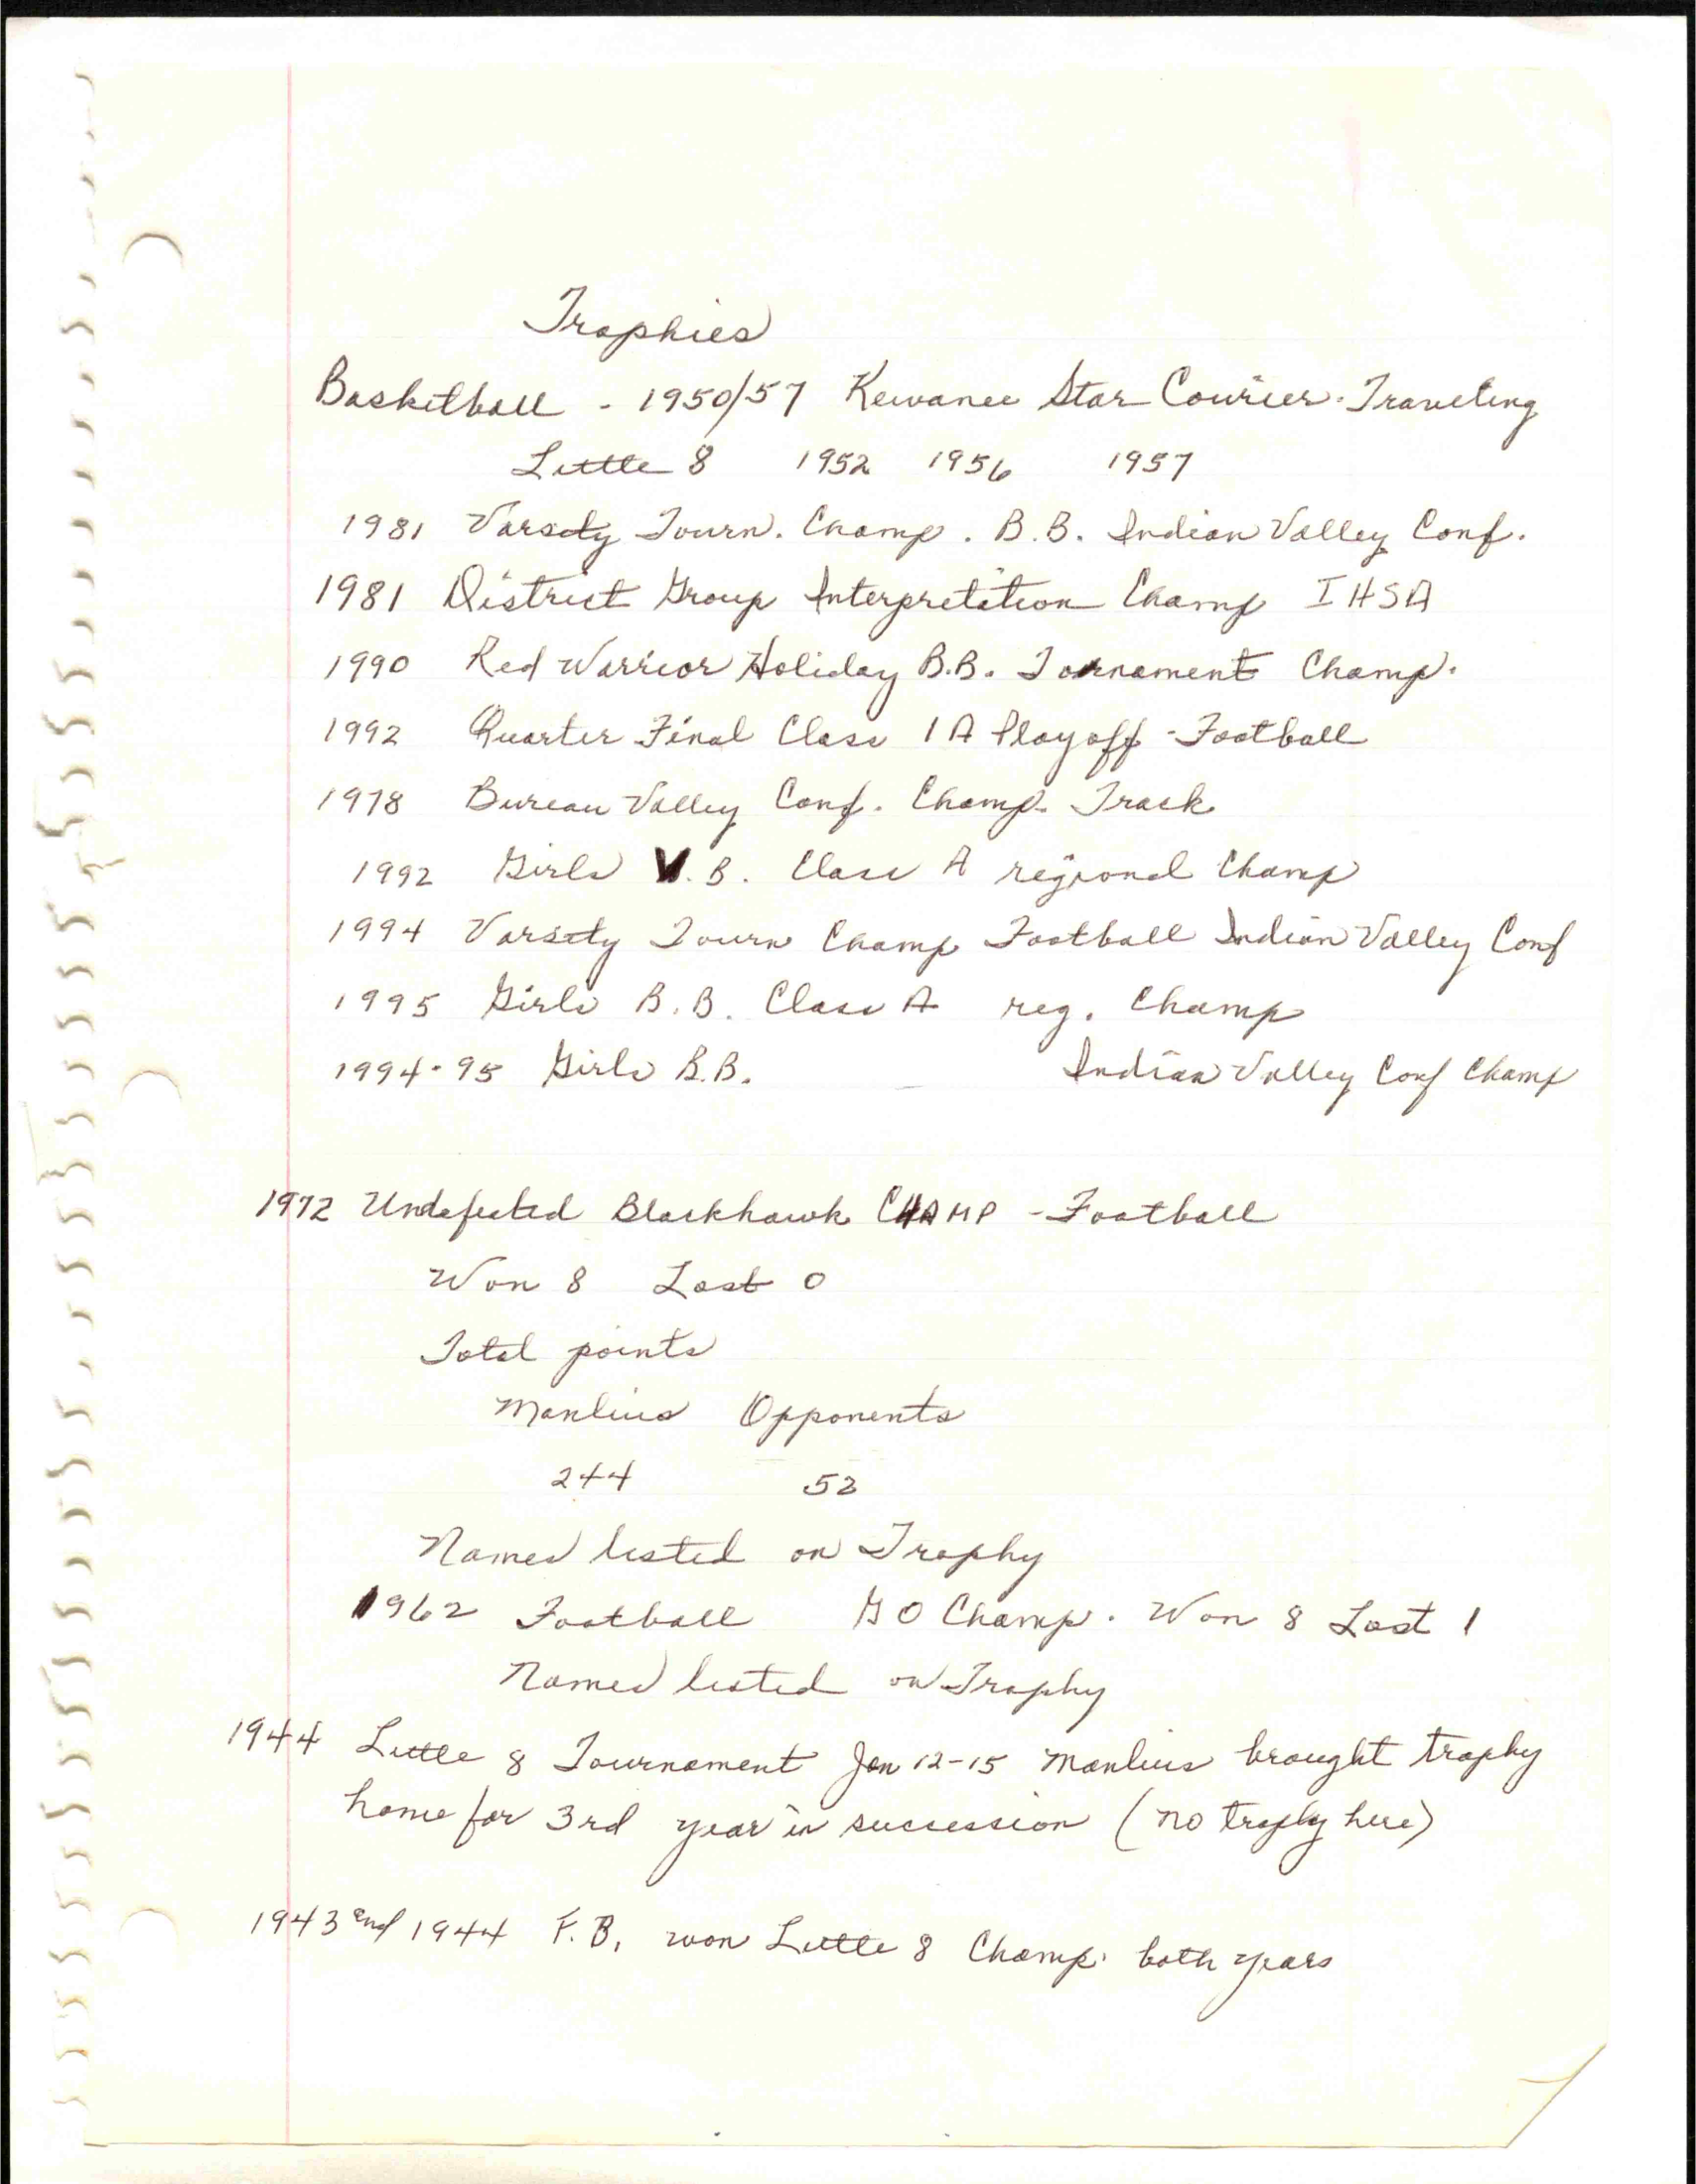 Trophies
Basketball - 1950/57 Kewanee Star Courier - Traveling
Little 8 1952 1956 1957
1981 Varsity Tourn. Champ. B.B. Indian Valley Conf.
1981 District Group Interpretation Champ IHSA
1990 Red Warrior Holiday B.B. Tornament Champ.
1992 Quarter Final Class 1A Playoff - Football
1978 Bureau Valley Conf. Champ. Track
1992 Girls V.B. Class A regional Champ
1994 Varsity Tourn Champ Football Indian Valley Conf
1995 Girls B.B. Class A reg. Champ
1994-95 Girls B.B. Indian Valley Conf Champ
1972 Undefeated Blackhawk CHAMP - Football
Won 8 Lost 0
Total points
Manlius Opponents
244 52
Names listed on Trophy
1962 Football Champ. Won 8 Lost 1
Names listed on Trophy
1944 Little 8 Tournament Jan 12-15 Manlius brought trophy
home for 3rd year in succession (no trophy here)
1943 and 1944 F.B. won Little 8 Champ. both years